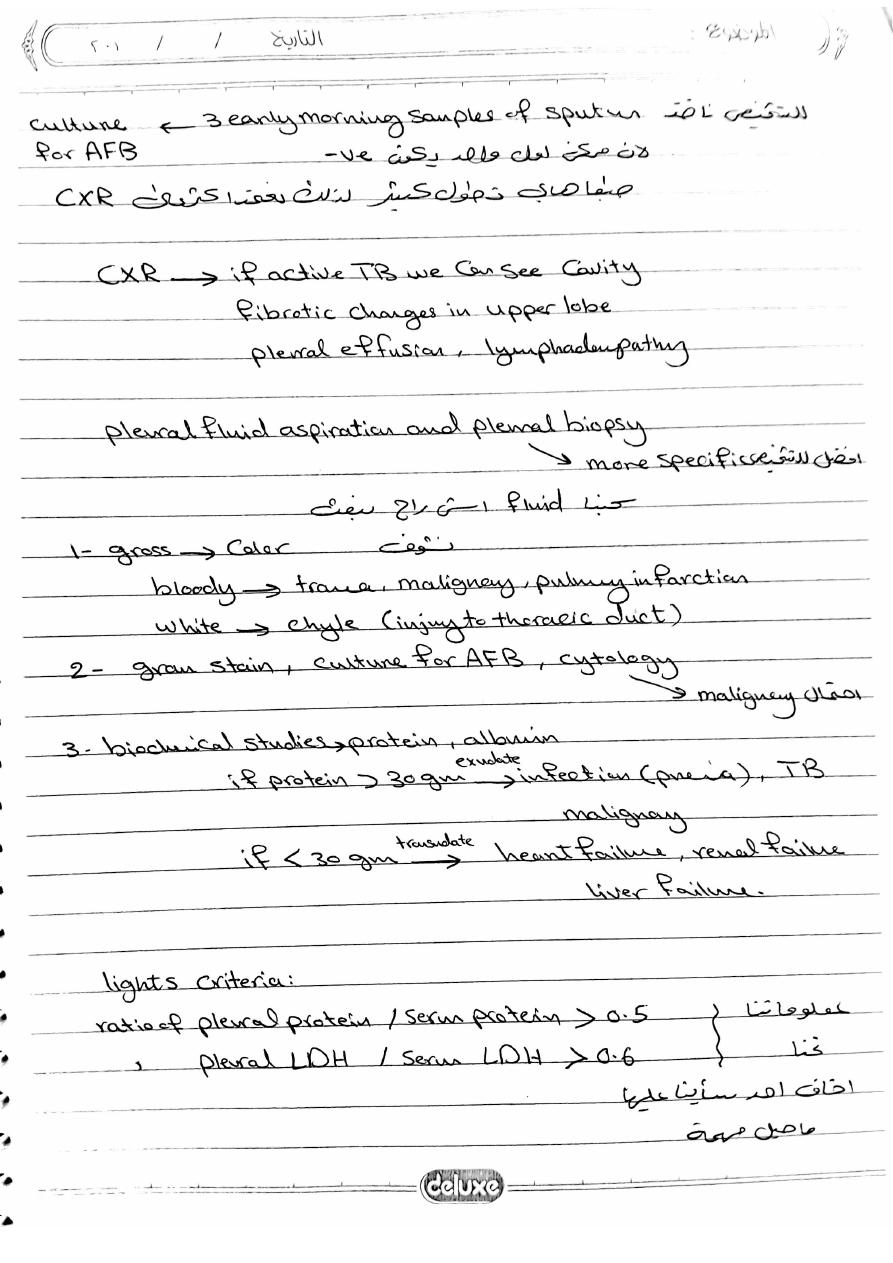 الموضوع :
التاريخ / / ٢٠١
للتشخيص ناخذ 3 early morning samples of sputum ← culture for AFB
لان ممكن اول واحد يكون -ve
تطول كثير لذلك نعتمد اكثر على CXR
CXR → if active TB we can see Cavity
fibrotic changes in upper lobe
pleural effusion, lymphadenopathy
pleural fluid aspiration and pleural biopsy
↘ more specific افضل للتشخيص
fluid
1- gross → Color نشوف
bloody → truma, maligncy, pulmry infarction
white → chyle (injury to thoracic duct)
2- gram stain, culture for AFB, cytology
↘ maligncy احتمال
3- biochmical studies → protein, albumin
if protein > 30 gm exudate → infection (pneia), TB
malignay
if < 30 gm transudate → heart failure, renal failure
liver failure.
lights criteria:
ratio of pleural protein / Serm protein > 0.5
, pleural LDH / Serm LDH > 0.6
معلوماتنا
احنا
اخاف احد سألنا عليها
ماصل مهمة
deluxe